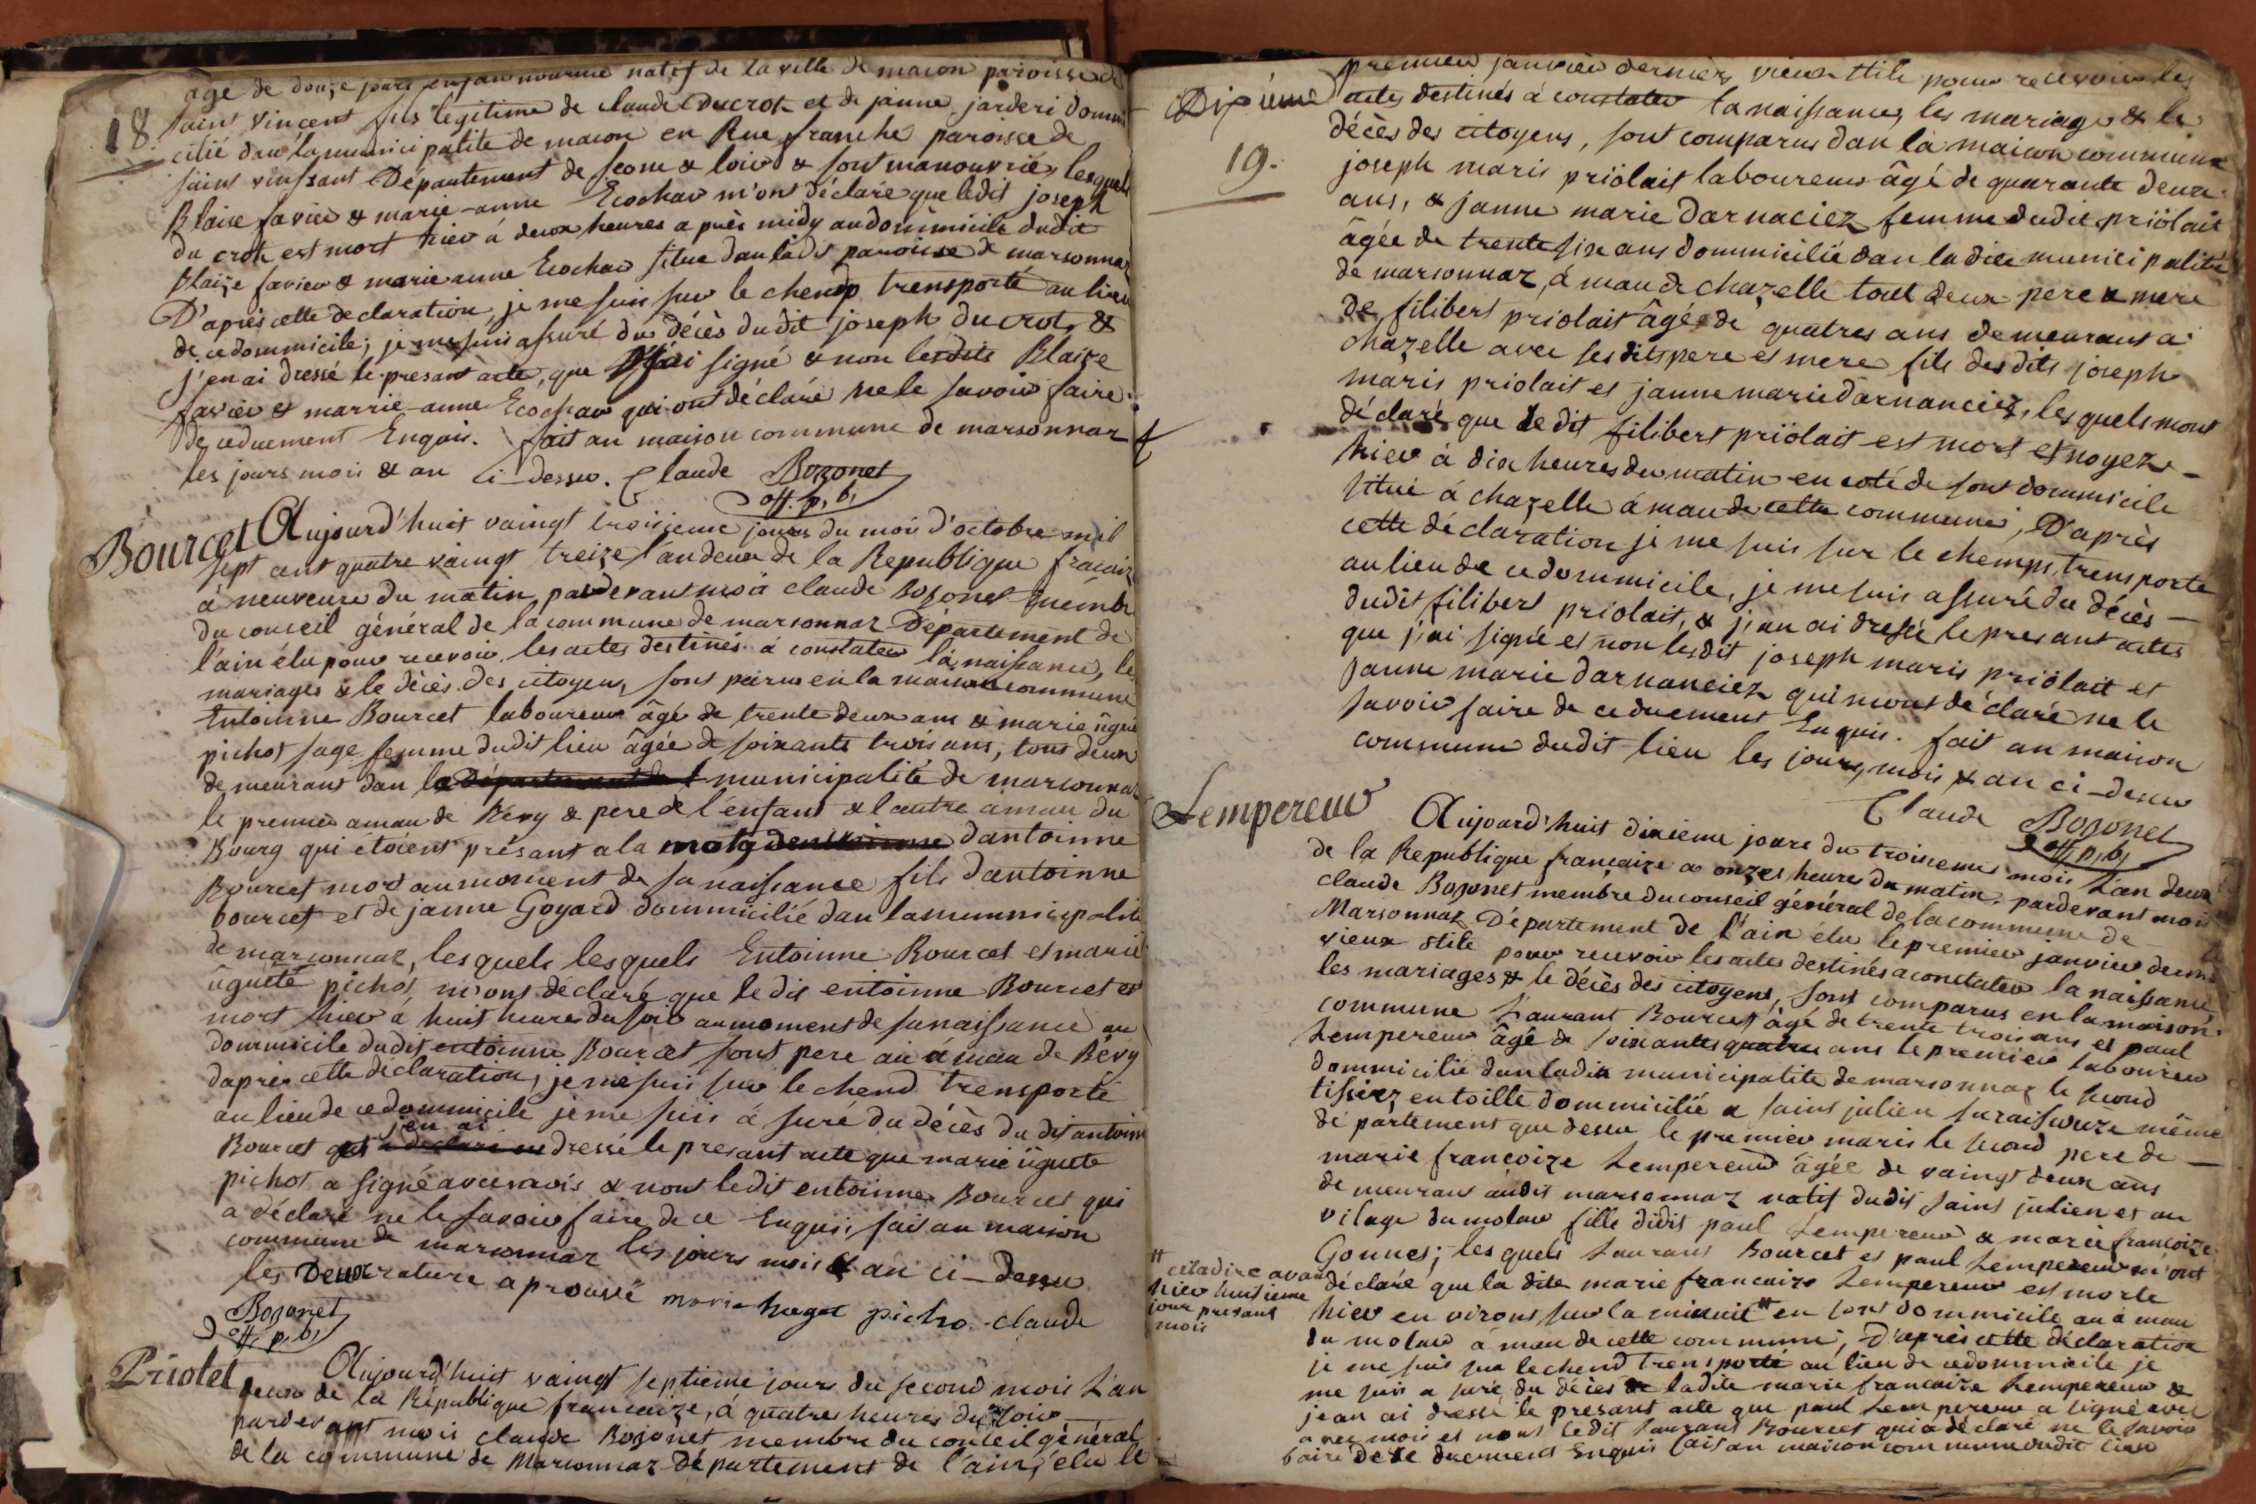 18.
âgé de douze jours enfant nourrice natif de la ville de macon paroisse de
saint vincent fils legitime de claude Ducrot et de janne jarderi dommi
cilié dan la municipalité de macon en Rue franche paroisse de
saint vinssant Département de seone & loire & sont manouvrié, lesquels
Blaise favier & marie-anne Ecochar m'ont déclaré que ledit joseph
du crot est mort hier à deux heures a près midy au dommicile dudit
Blaize favier & marie anne Ecochar situe dan ladit paroisse de marsonnaz
D'après cette declaration, je me suis sur le chemp trensporté au lieu
de ce dommicile; je me suis assuré du décès du dit joseph du crot, &
j'en ai dressé le presant acte, que j'ai signé & non lesdits Blaize
favier & marrie-anne Ecochar qui ont déclaré ne le savoir faire
de ce duement Enquis. fait an maison commune de marsonnaz
les jours mois & an ci-dessu. Claude Bozonet
off. p. b.
Bourcet
Aujourd'huit vaingt troisieme jours du moi d'octobre mil
sept cent quatre vaingt treize l'an deux de la Republique fracaize
à neuveure du matin, pardevant moi à claude Bozonet membre
du conseil général de la commune de marsonnaz Département de
l'ain élu pour recevoir les actes destinés à constater la naissance, le
mariages & le décès des citoyens, sont parus en la maison commune
Entoinne Bourcet laboureur âgé de trente deux ans & marie ugue
pichot sage femme dudit lieu âgée de soixante trois ans, tous deux
demeurant dan la municipalité de marsonna
le premier amau de Bévy & pere de l'enfant & l'autre amau du
Bourg qui étoient présant a la dantoinne
Bourcet mort au moment de sa naissance fils d'antoinne
bourcet et de janne Goyard dommicilié dan la municipalité
de marsonnaz, lesquels lesquels Entoinne Bourcet et marie
uguete pichot m'ont déclaré que ledit entoinne Bourcet est
mort hier à huit heure du soir au moment de sa naissance au
dommicile dudit entoinne Bourcet sont pere au amau de Bévy
d'après cette declaration, je me suis sur le chend trensporté
au lieu de ce dommicile je me suis à suré du décès du dit antoine
j'en ai
Bourcet dressé le presant acte que marie uguete
pichot a signé avec moi & nont ledit entoinne Bourcet qui
a déclaré ne le savoir faire de ce Enquis, fait an maison
commune de marsonnaz les jours mois & an ci-dessu
les Deux rature aprouvé marie hugat picho claude
Bozonet
off. p. b.
Priolet
Aujourd'huit vaingt septieme jours du second mois L'an
deux de la République francaize, à quatre heures du soir
pardevant moi claude Bozonet membre du conseil général
de la commune de Marsonnaz Département de l'ain, élu le
Dipiéme
19.
premier janvier dernier, vieux stile pour recevoir les
actes destinés à constater la naissance, les mariages & le
décès des citoyens, sont comparus dan la maison commune
joseph maris priolait laboureur âgé de quarante deux
ans, & janne marie darnaciez femme dudit priolait
âgée de trente six ans dommicilié dan la dite municipalité
de marsonnaz, á mau de chazelle tout deux pere & mere
de filibert priolait âgé de quatres ans demeurant a
chazelle avec ses dits pere et mere fils des dits joseph
maris priolait et janne marie darnanciez, lesquels mont
déclaré que le dit filibert priolait est mort et noyez
hier à dix heures du matin en coté de sont dommicile
situé á chazelle á mau de cette commune; D'après
cette déclaration je me suis sur le chemps, trensporté
au lieu de ce dommicile, je me suis assuré du décès
dudit filibert priolait, & j'an ai dressé le presant actes
que j'ai signé et non lesdit joseph maris priolait et
janne marie darnanciez qui mont déclaré ne le
savoir faire de ce duement Enquis. fait an maison
commune dudit lieu les jours, mois & an ci-dessu
Claude Bozonet
off. p. b.
Lempereur
Aujourd'huit dixieme jours du troisiemes mois L'an deux
de la Republique françaize a onzes heures du matin, pardevant moi
claude Bozonet membre du conseil général de la commune de
Marsonnaz Département de l'ain élu le premier janvier dernié
vieux stile pour recevoir les actes destinés a constater la naissance
les mariages & le décès des citoyens, sont comparus en la maison
commune Laurant Bourcet âgé de trente trois ans et paul
Lempereur âgé de soixantes quatre ans le premier laboureur
dommicilié dan ladite municipalité de marsonnaz le second
tissiez en toille dommicilié a saint julien sur aissouze même
département que dessu le premier maris le second pere de
marie francoize Lempereur âgée de vaingt deux ans
demeurant audit marsonnaz natif dudit saint julien et au
vilage du molard fille dudit paul Lempereur & marie francoize
Gonnet; lesquels Laurant Bourcet et paul Lempereur m'ont
déclaré que la dite marie francaize Lempereur est morte
hier en virons sur la minuit # en sont dommicile au á mau
du molard á mau de cette commune; D'après cette déclaration
je me suis sur le chend trensporté au lieu de ce dommicile je
me suis a suré du décès de ladite marie francaize Lempereur &
jean ai dressé le presant acte que paul Lempereur a signé avec
avec moi et nont ledit Laurant Bourcet qui a déclaré ne le savoir
faire de ce duement Enquis fait an maison commune dudit lieu
# cetadire avan
hier huitieme
jour presant
mois